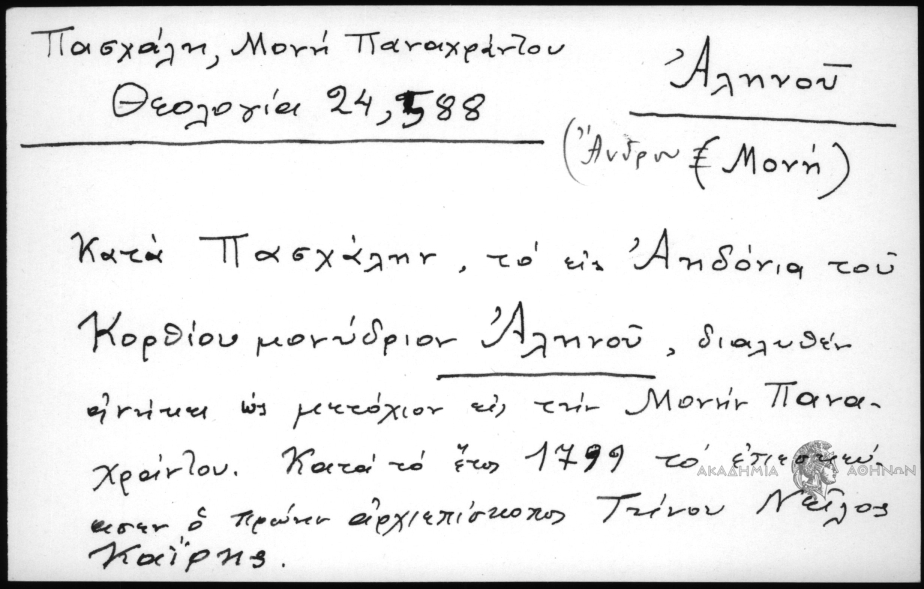 Πασχάλη, Μονή Παναχράντου
Θεολογία 24, 588
Ἀληνοῦ
(Ἄνδρου (Μονή)
Κατά Πασχάλην, τό εἰς Ἀηδόνια τοῦ
Κορθίου μονύδριον Ἀληνοῦ, διαλυθέν
ἀνήκει ὡς μετόχιον εἰς τήν Μονήν Πανα-
χράντου. Κατά τό ἔτος 1799 τό ἐπεσκεύ-
ασεν ὁ πρώην ἀρχιεπίσκοπος Τήνου Νεῖλος
Καΐρης.
ΑΚΑΔΗΜΙΑ ΑΘΗΝΩΝ